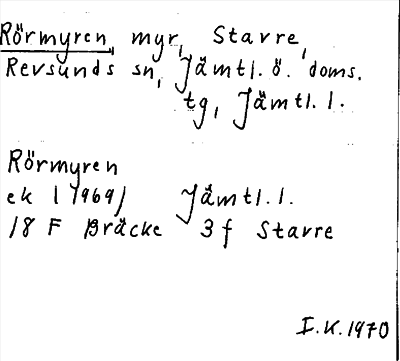 Rörmyren, myr, Stavre,
Revsunds sn, Jämtl. ö. doms.
tg, Jämtl. l.
Rörmyren
ek (1969) Jämtl. l.
18 F Bräcke 3 f Stavre
I.K. 1970